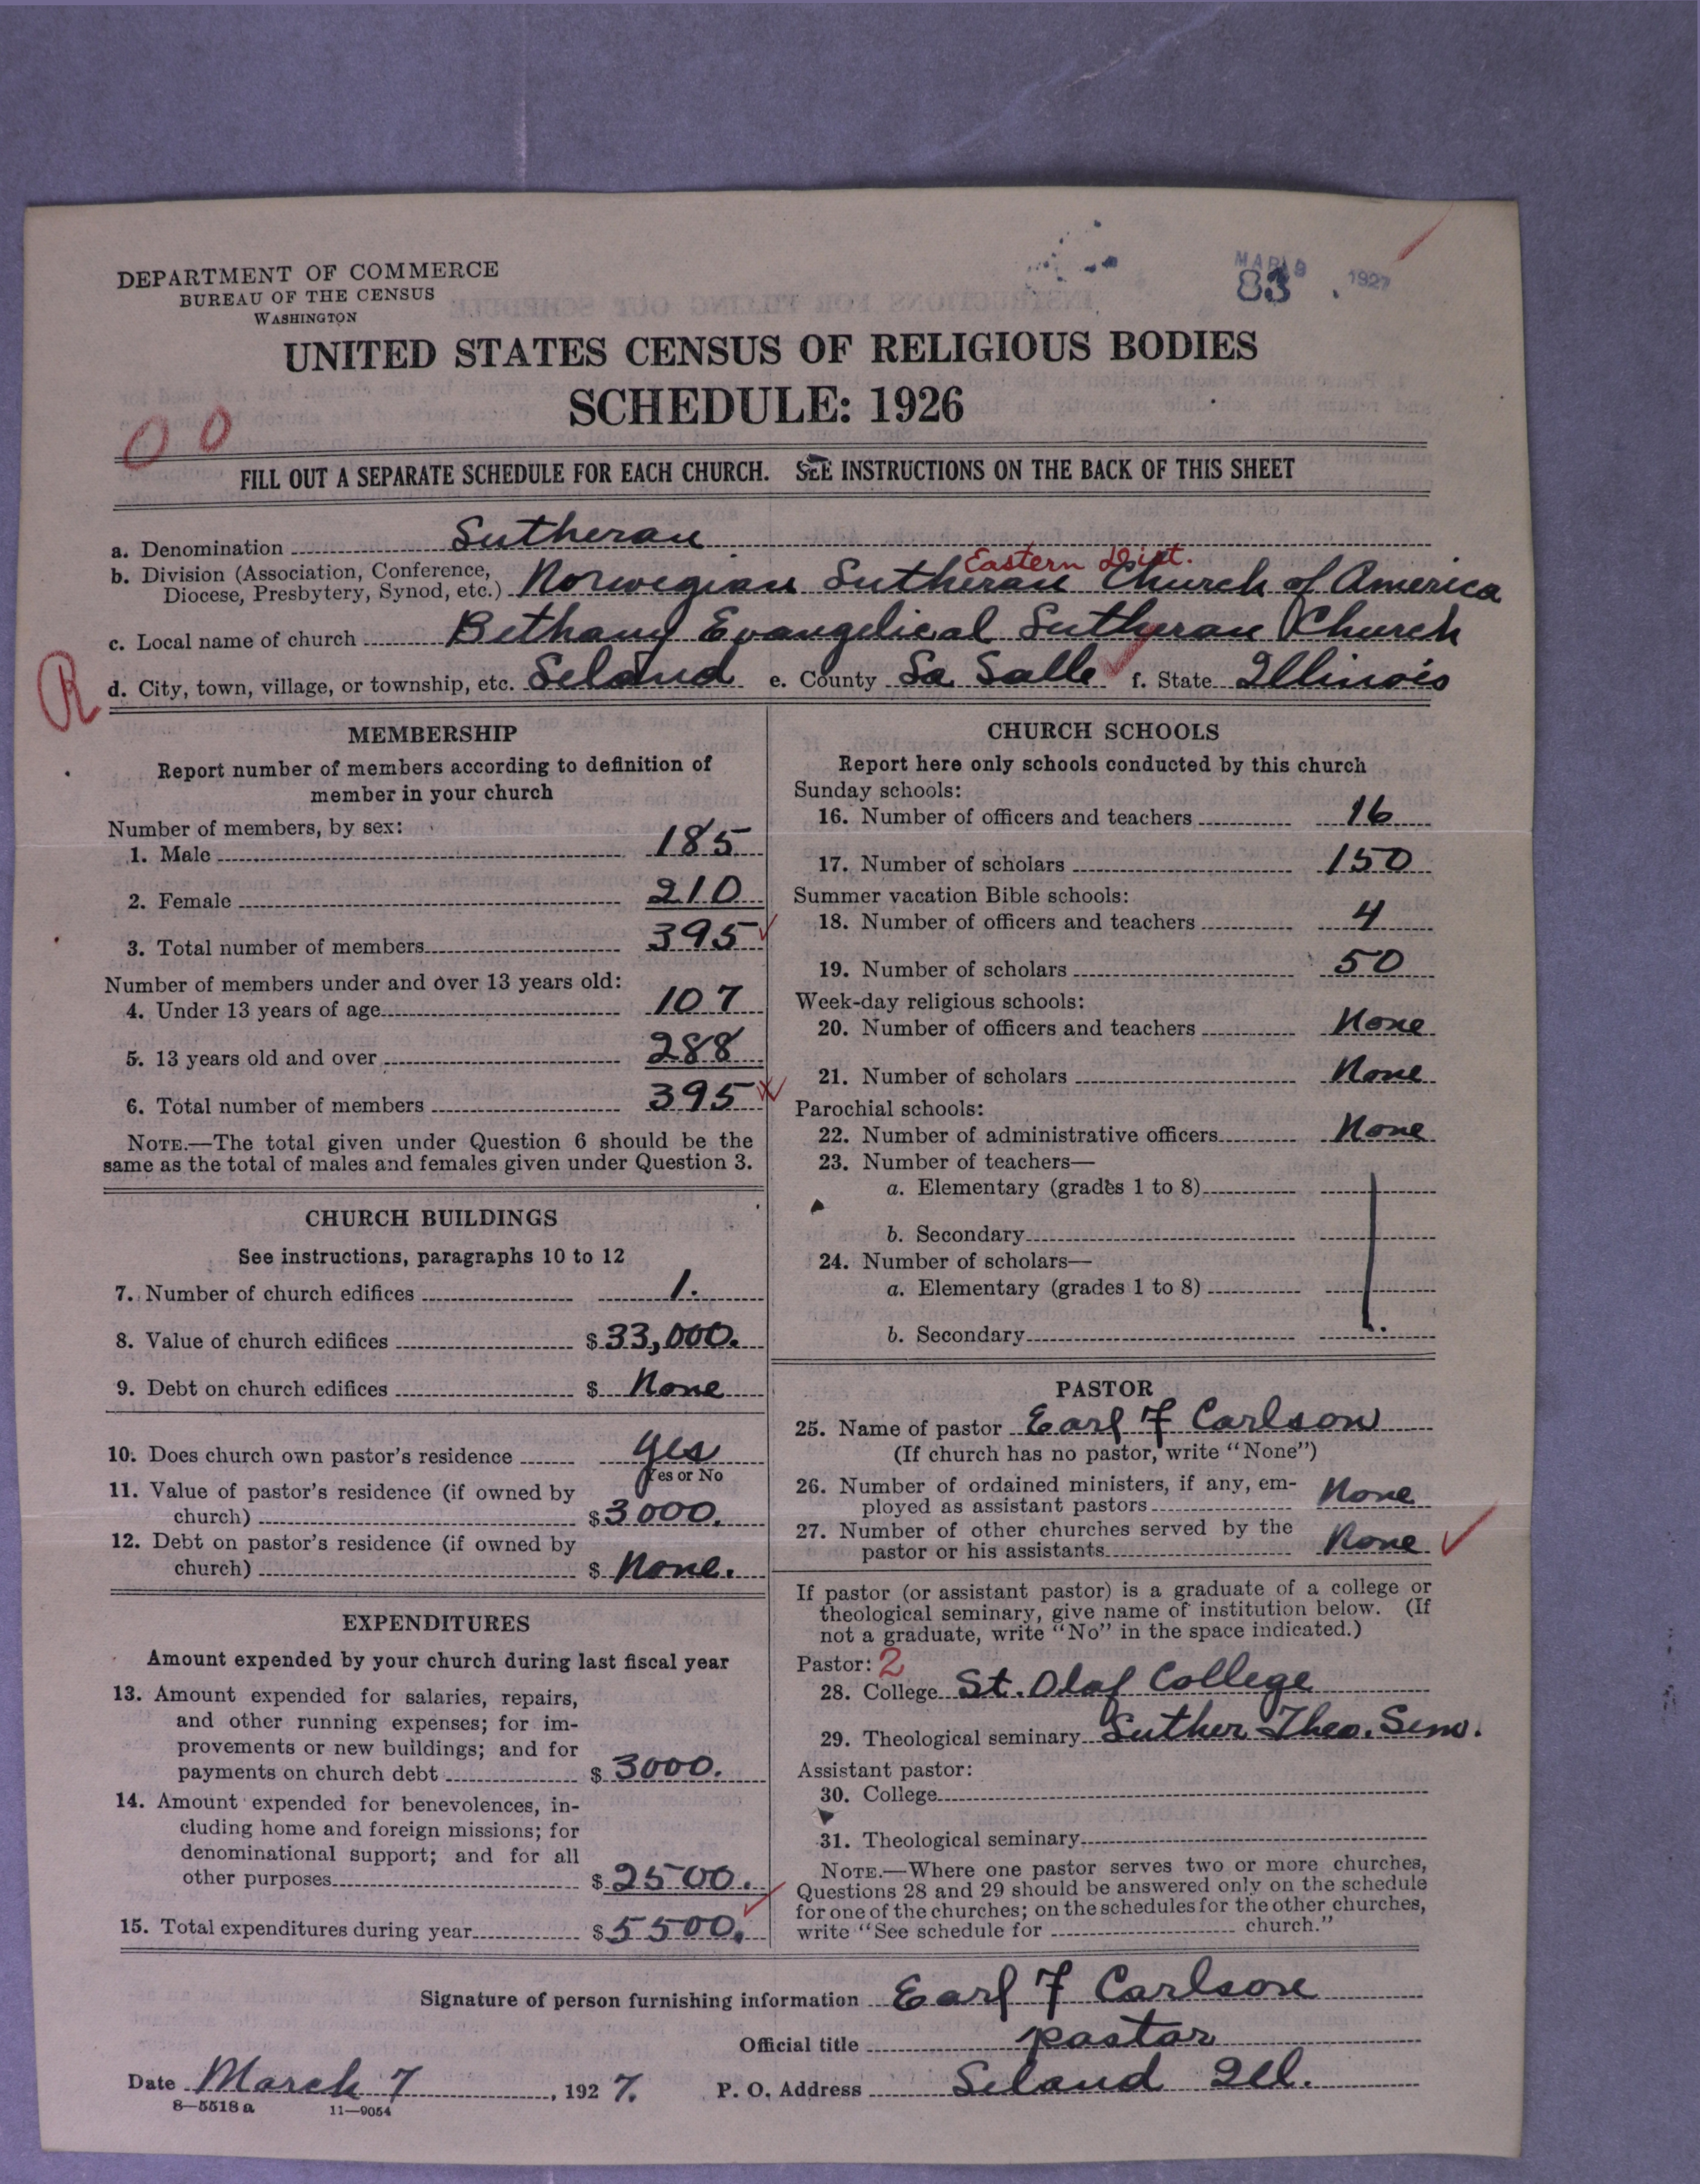 DEPARTMENT OF COMMERCE
BUREAU OF THE CENSUS
WASHINGTON
MAR 9 1927
83
UNITED STATES CENSUS OF RELIGIOUS BODIES
SCHEDULE: 1926
0 0
FILL OUT A SEPARATE SCHEDULE FOR EACH CHURCH. SEE INSTRUCTIONS ON THE BACK OF THIS SHEET
a. Denomination Lutheran
Eastern Dist.
b. Division (Association, Conference,
Diocese, Presbytery, Synod, etc.) Norwegian Lutheran Church of America
c. Local name of church Bethany Evangelical Lutheran Church
R
d. City, town, village, or township, etc. Leland e. County La Salle f. State Illinois
MEMBERSHIP
Report number of members according to definition of
member in your church
Number of members, by sex:
1. Male 185
2. Female 210
3. Total number of members 395
Number of members under and over 13 years old:
4. Under 13 years of age 107
5. 13 years old and over 288
6. Total number of members 395
NOTE.—The total given under Question 6 should be the
same as the total of males and females given under Question 3.
CHURCH BUILDINGS
See instructions, paragraphs 10 to 12
7. Number of church edifices 1.
8. Value of church edifices $ 33,000.
9. Debt on church edifices $ None
10. Does church own pastor's residence yes
Yes or No
11. Value of pastor's residence (if owned by
church) $ 3000.
12. Debt on pastor's residence (if owned by
church) $ None.
EXPENDITURES
Amount expended by your church during last fiscal year
13. Amount expended for salaries, repairs,
and other running expenses; for im-
provements or new buildings; and for
payments on church debt $ 3000.
14. Amount expended for benevolences, in-
cluding home and foreign missions; for
denominational support; and for all
other purposes $ 2500.
15. Total expenditures during year $ 5500.
CHURCH SCHOOLS
Report here only schools conducted by this church
Sunday schools:
16. Number of officers and teachers 16
17. Number of scholars 150
Summer vacation Bible schools:
18. Number of officers and teachers 4
19. Number of scholars 50
Week-day religious schools:
20. Number of officers and teachers None
21. Number of scholars None
Parochial schools:
22. Number of administrative officers None
23. Number of teachers—
a. Elementary (grades 1 to 8)
b. Secondary
24. Number of scholars—
a. Elementary (grades 1 to 8)
b. Secondary
PASTOR
25. Name of pastor Earl F Carlson
(If church has no pastor, write "None")
26. Number of ordained ministers, if any, em-
ployed as assistant pastors None
27. Number of other churches served by the
pastor or his assistants None
If pastor (or assistant pastor) is a graduate of a college or
theological seminary, give name of institution below. (If
not a graduate, write "No" in the space indicated.)
Pastor: 2
28. College St. Olaf College
29. Theological seminary Luther Theo. Sem.
Assistant pastor:
30. College
31. Theological seminary
NOTE.—Where one pastor serves two or more churches,
Questions 28 and 29 should be answered only on the schedule
for one of the churches; on the schedules for the other churches,
write "See schedule for church."
Signature of person furnishing information Earl F Carlson
Official title pastor
Date March 7, 1927. P. O. Address Leland Ill.
8—5518 a 11—9054